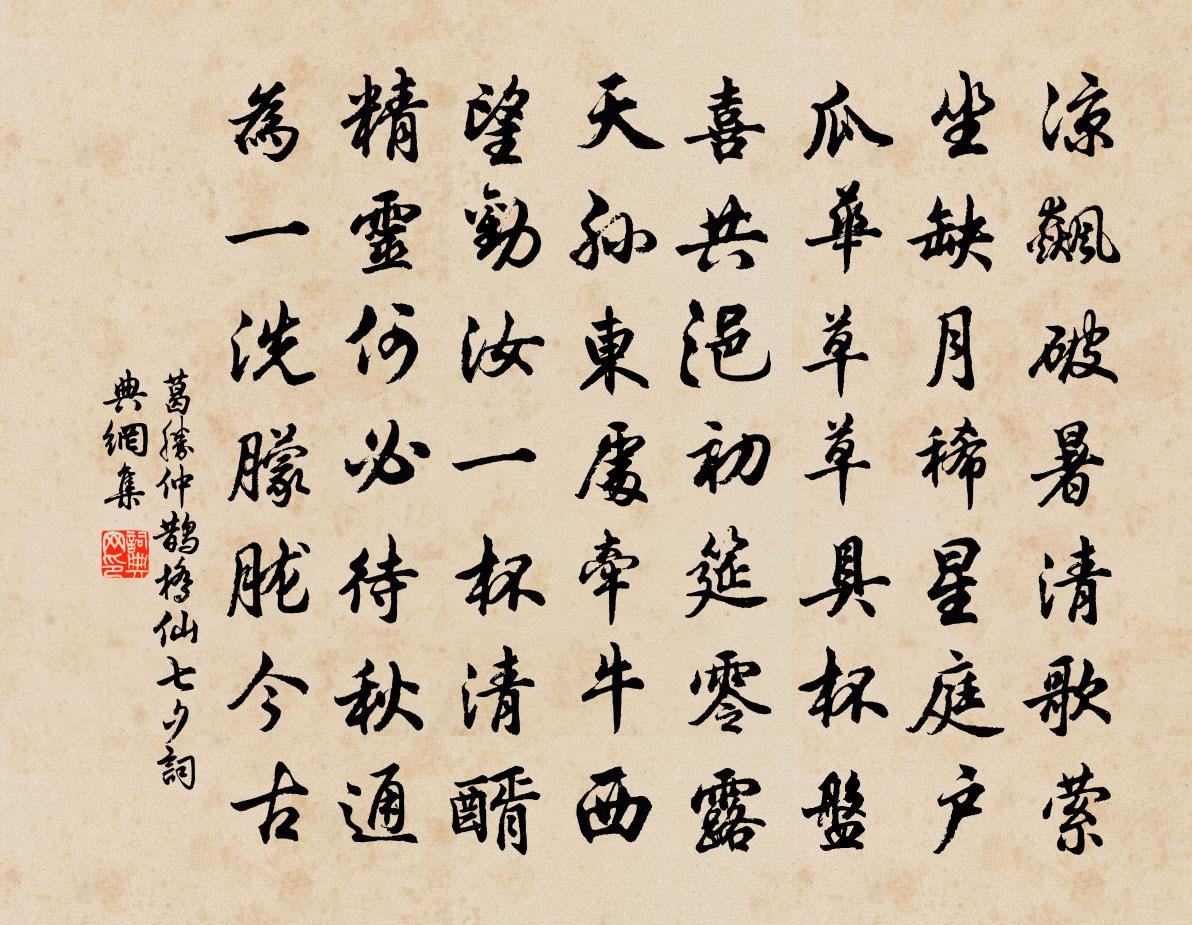 涼飆破暑清歌縈
坐缺月稀星庭户
瓜華草草具杯盤
喜共浥初筵零露
天孫東處牽牛西
望勸汝一杯清醑
精靈何必待秋通
為一洗朦朧今古
葛勝仲鵲橋仙七夕詞
典網集
詞典网印